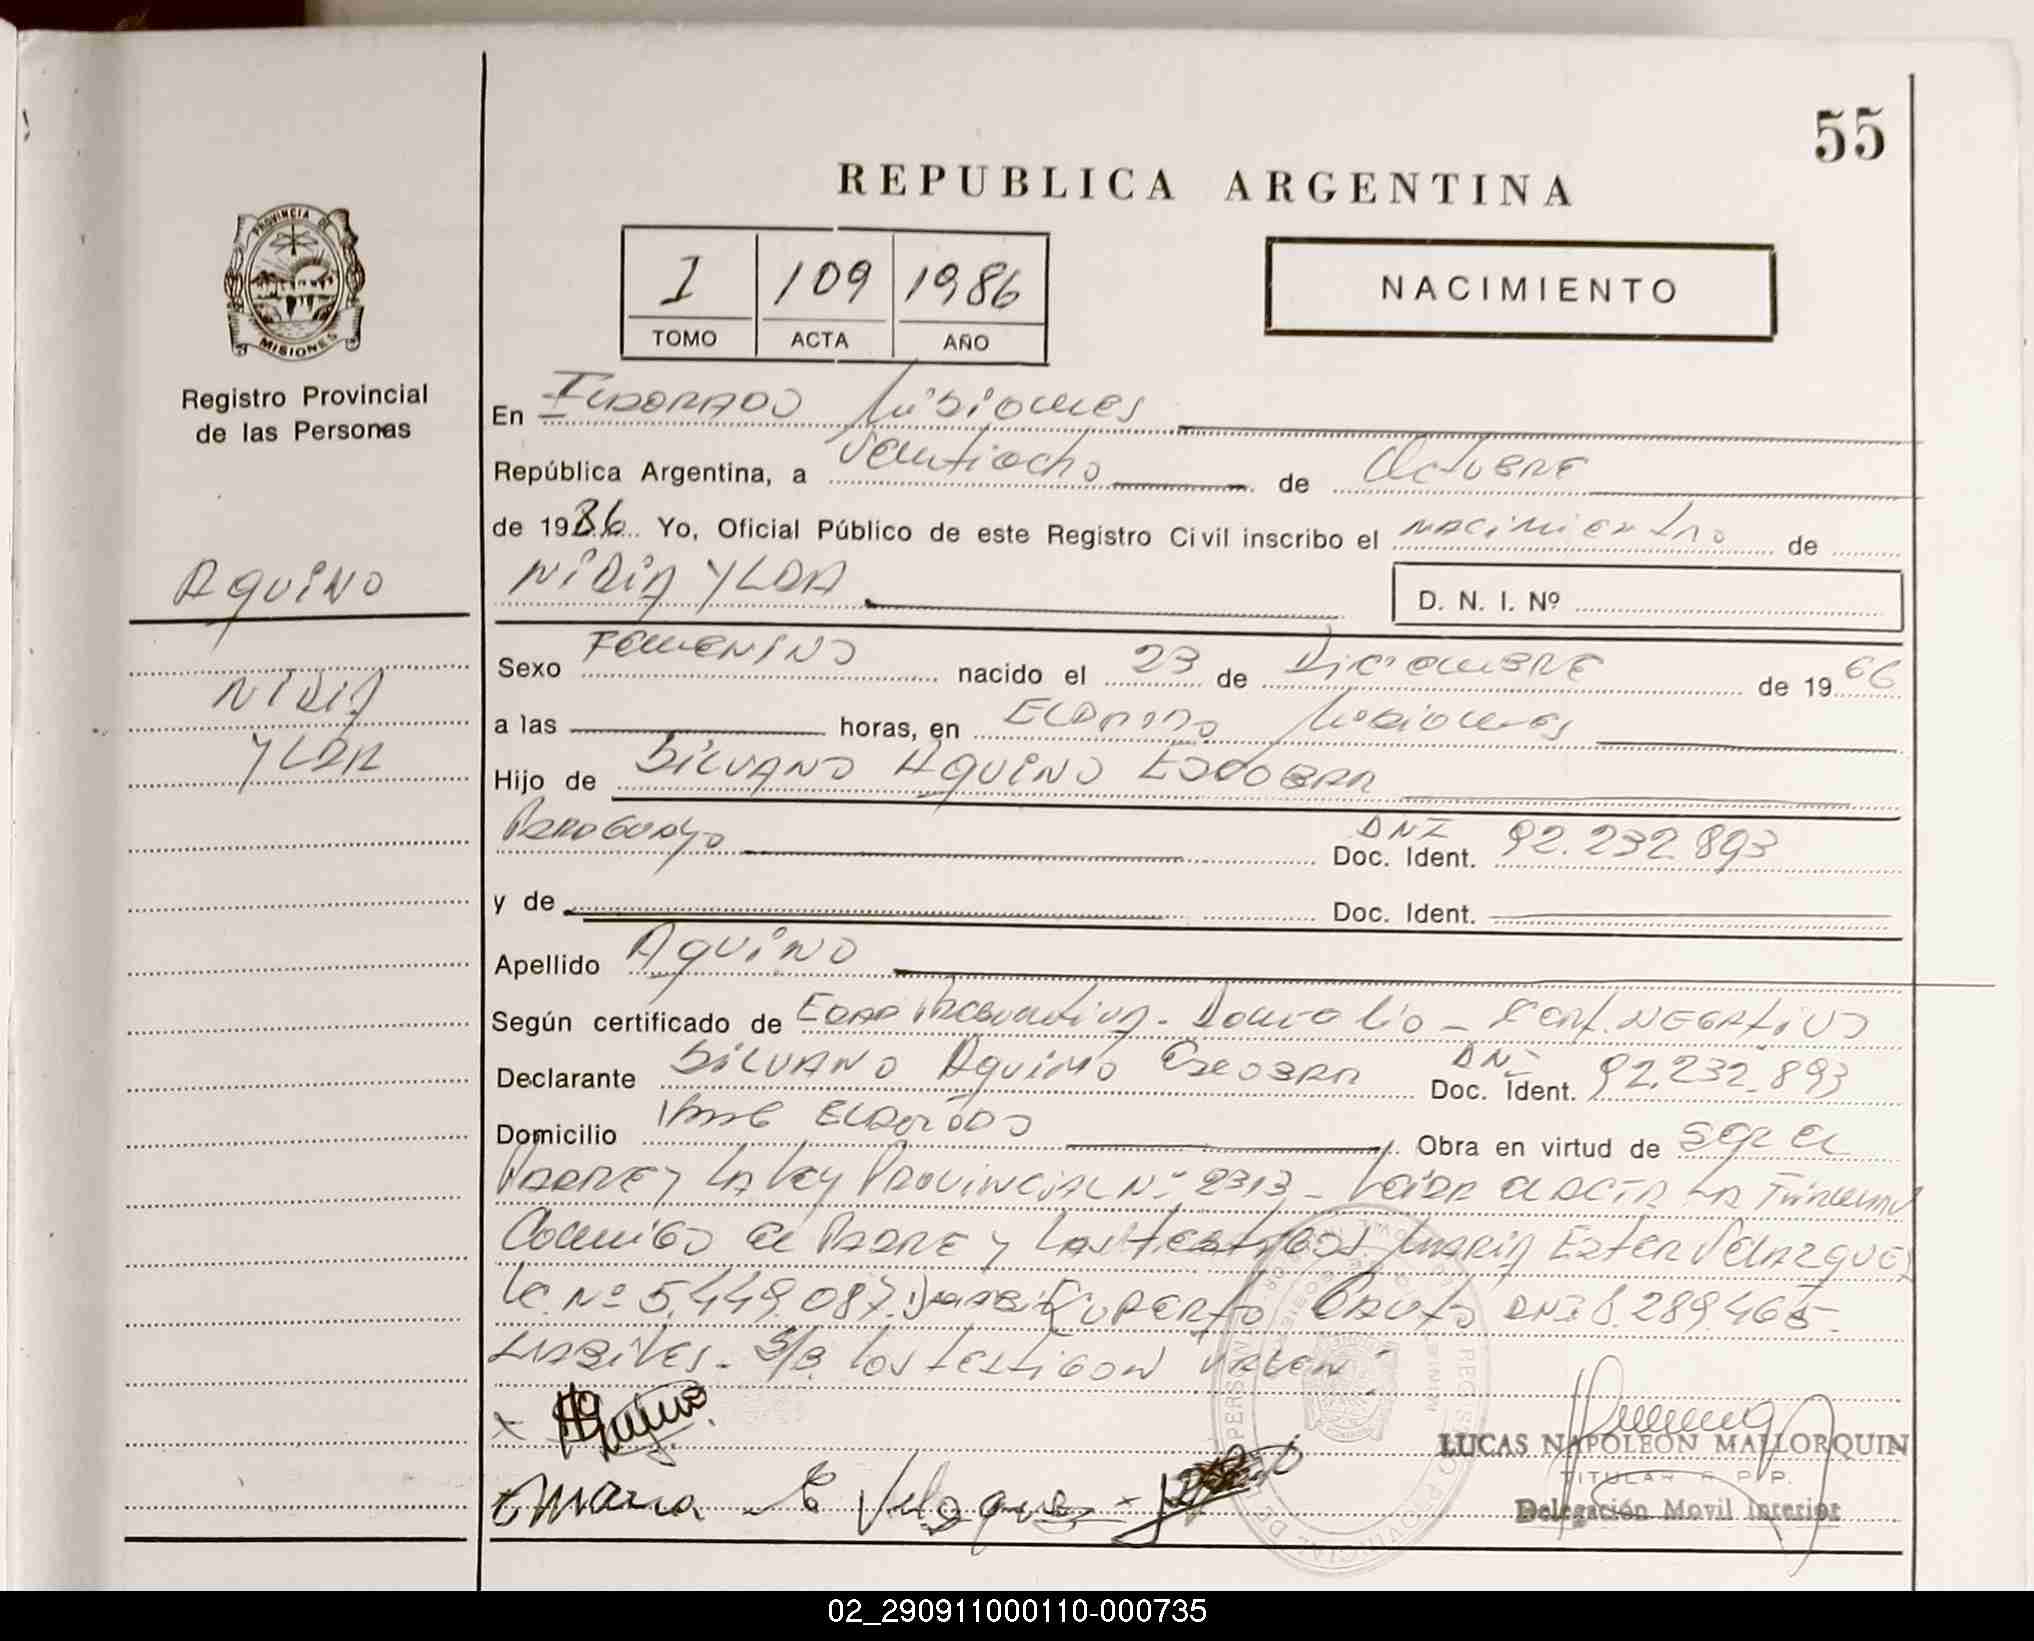 55
REPUBLICA ARGENTINA
PROVINCIA DE
MISIONES
Registro Provincial
de las Personas
I 109 1986
TOMO ACTA AÑO
NACIMIENTO
En ELDORADO Misiones
República Argentina, a Veintiocho de Octubre
de 1986. Yo, Oficial Público de este Registro Civil inscribo el nacimiento de
AQUINO
NIDIA YLDA
D. N. I. Nº
Sexo FEMENINO nacido el 23 de Diciembre de 1966
NIDIA
a las horas, en Eldorado Misiones
YLDA
Hijo de SILVANO AQUINO ESCOBAR
Paraguayo DNI Doc. Ident. 92.232.893
y de Doc. Ident.
Apellido AQUINO
Según certificado de Edad Presuntiva - Domicilio - Cert. NEGATIVO
Declarante SILVANO AQUINO ESCOBAR DNI Doc. Ident. 92.232.893
Domicilio ELDORADO Obra en virtud de ser el
PADRE y LA Ley PROVINCIAL Nº 2313 - Leida el ACTA LA Firman
Conmigo el PADRE y Los testigos MARIA ESTER VELAZQUEZ
LC. Nº 5.449.087. DNI 8.289.465-
HABILES. S/B. los testigos VALEN
Aquino
Maria E Velazquez
LUCAS NAPOLEON MALLORQUIN
TITULAR R. P. P.
Delegación Movil Interior
02_290911000110-000735